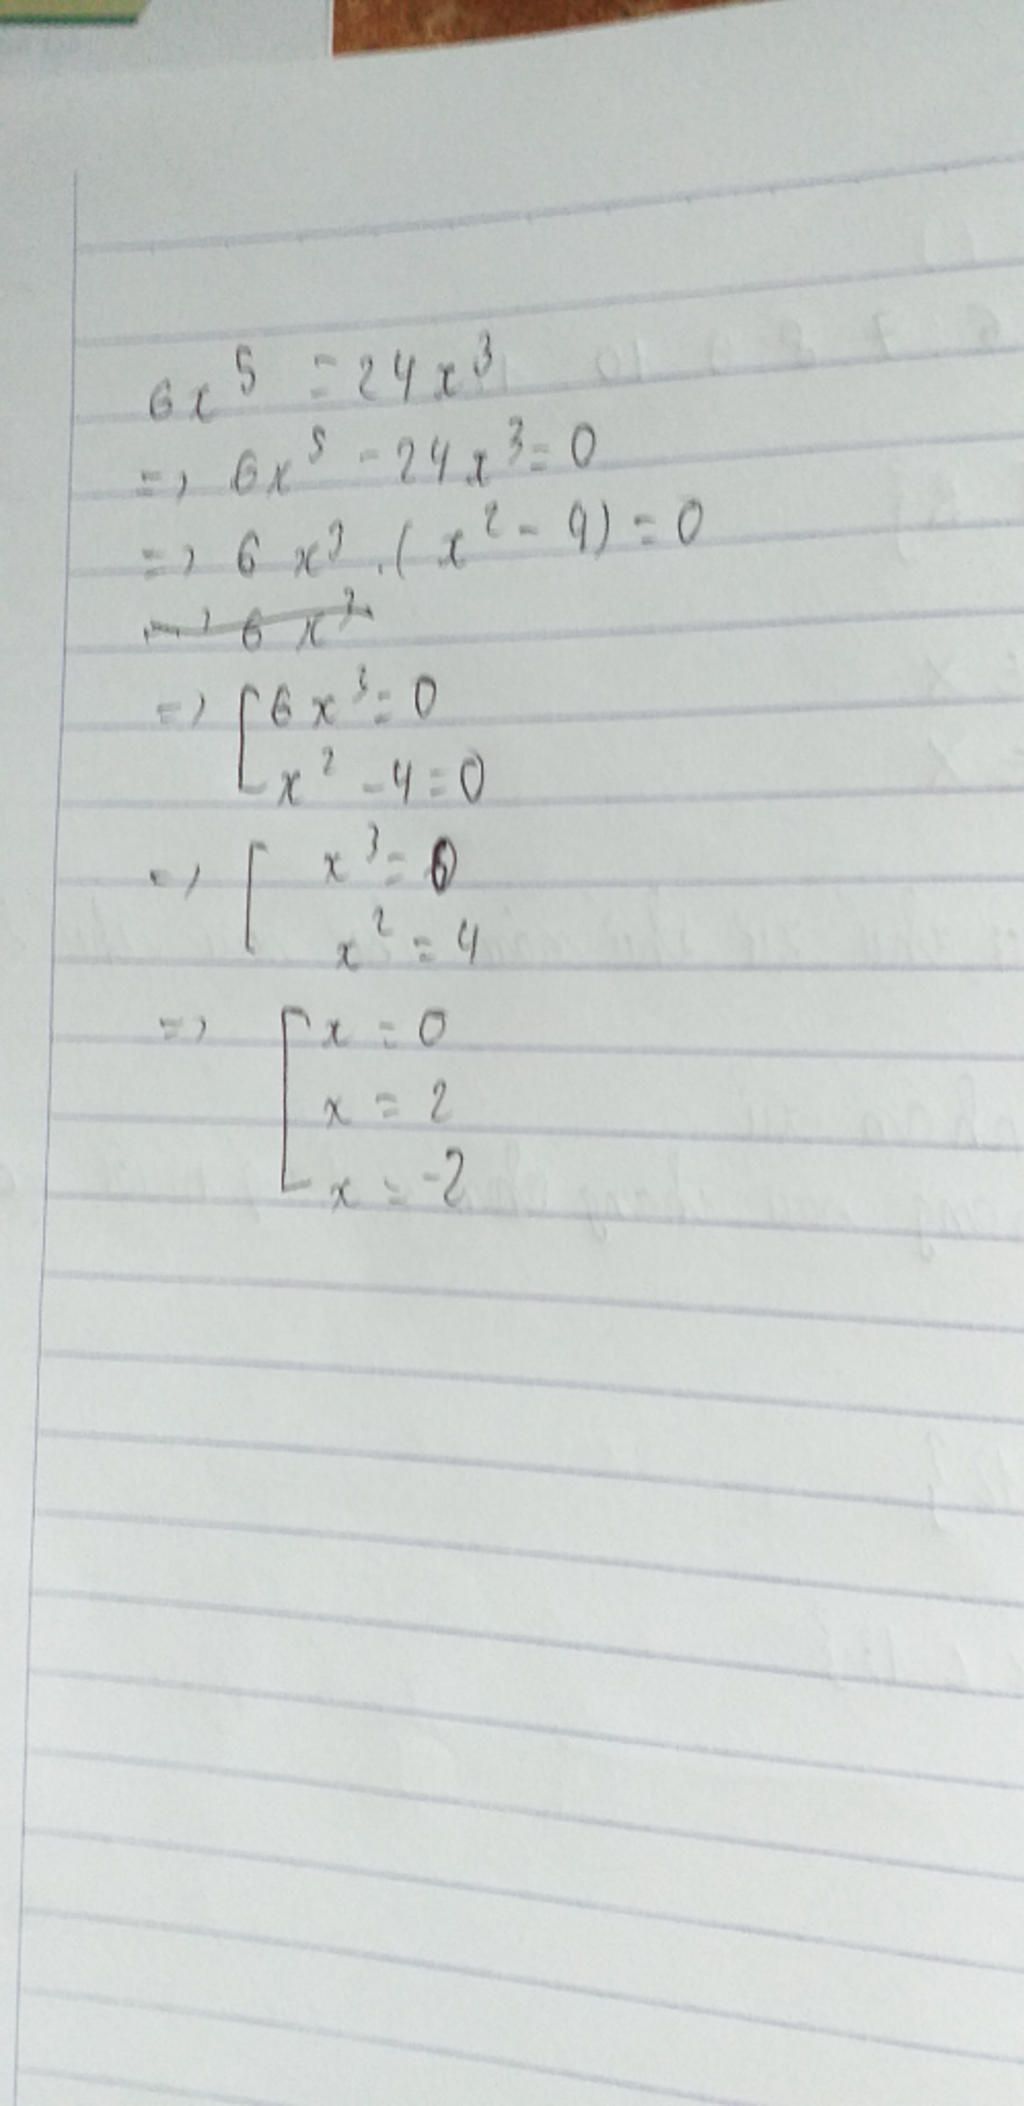 6x⁵ = 24x³
=> 6x⁵ - 24x³ = 0
=> 6x³ . (x² - 4) = 0
=> 6x³
=> [ 6x³ = 0
x² - 4 = 0
=> [ x³ = 0
x² = 4
=> [ x = 0
x = 2
x = -2